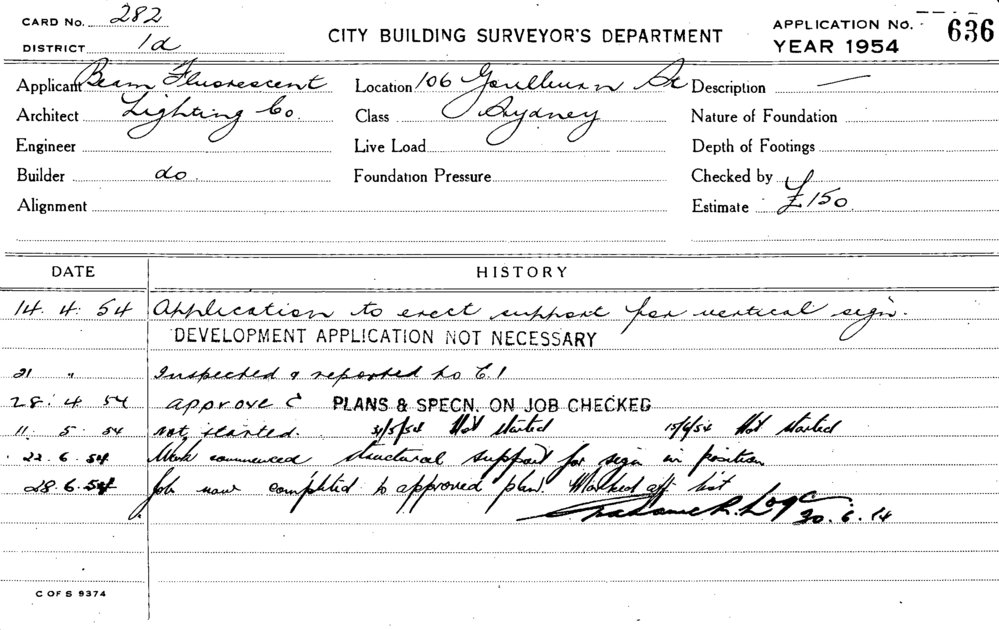 CARD No. 282
DISTRICT 1d
CITY BUILDING SURVEYOR'S DEPARTMENT
APPLICATION No. 636
YEAR 1954
Applicant Beam Fluorescent
Location 106 Goulburn St
Description —
Architect Lighting Co.
Class Sydney
Nature of Foundation
Engineer
Live Load
Depth of Footings
Builder do.
Foundation Pressure
Checked by
Alignment
Estimate £150.
DATE HISTORY
14. 4. 54 Application to erect support for vertical sign.
DEVELOPMENT APPLICATION NOT NECESSARY
21 " Inspected & reported to C.I
28. 4 54 approve C PLANS & SPECN. ON JOB CHECKED
11. 5. 54 Not started. 31/5/54 Not started 15/6/54 Not started
22. 6. 54 Work commenced structural support for sign in position
28. 6. 54 Job now completed to approved plan. Marked off list
30. 6. 54
C OF S 9374